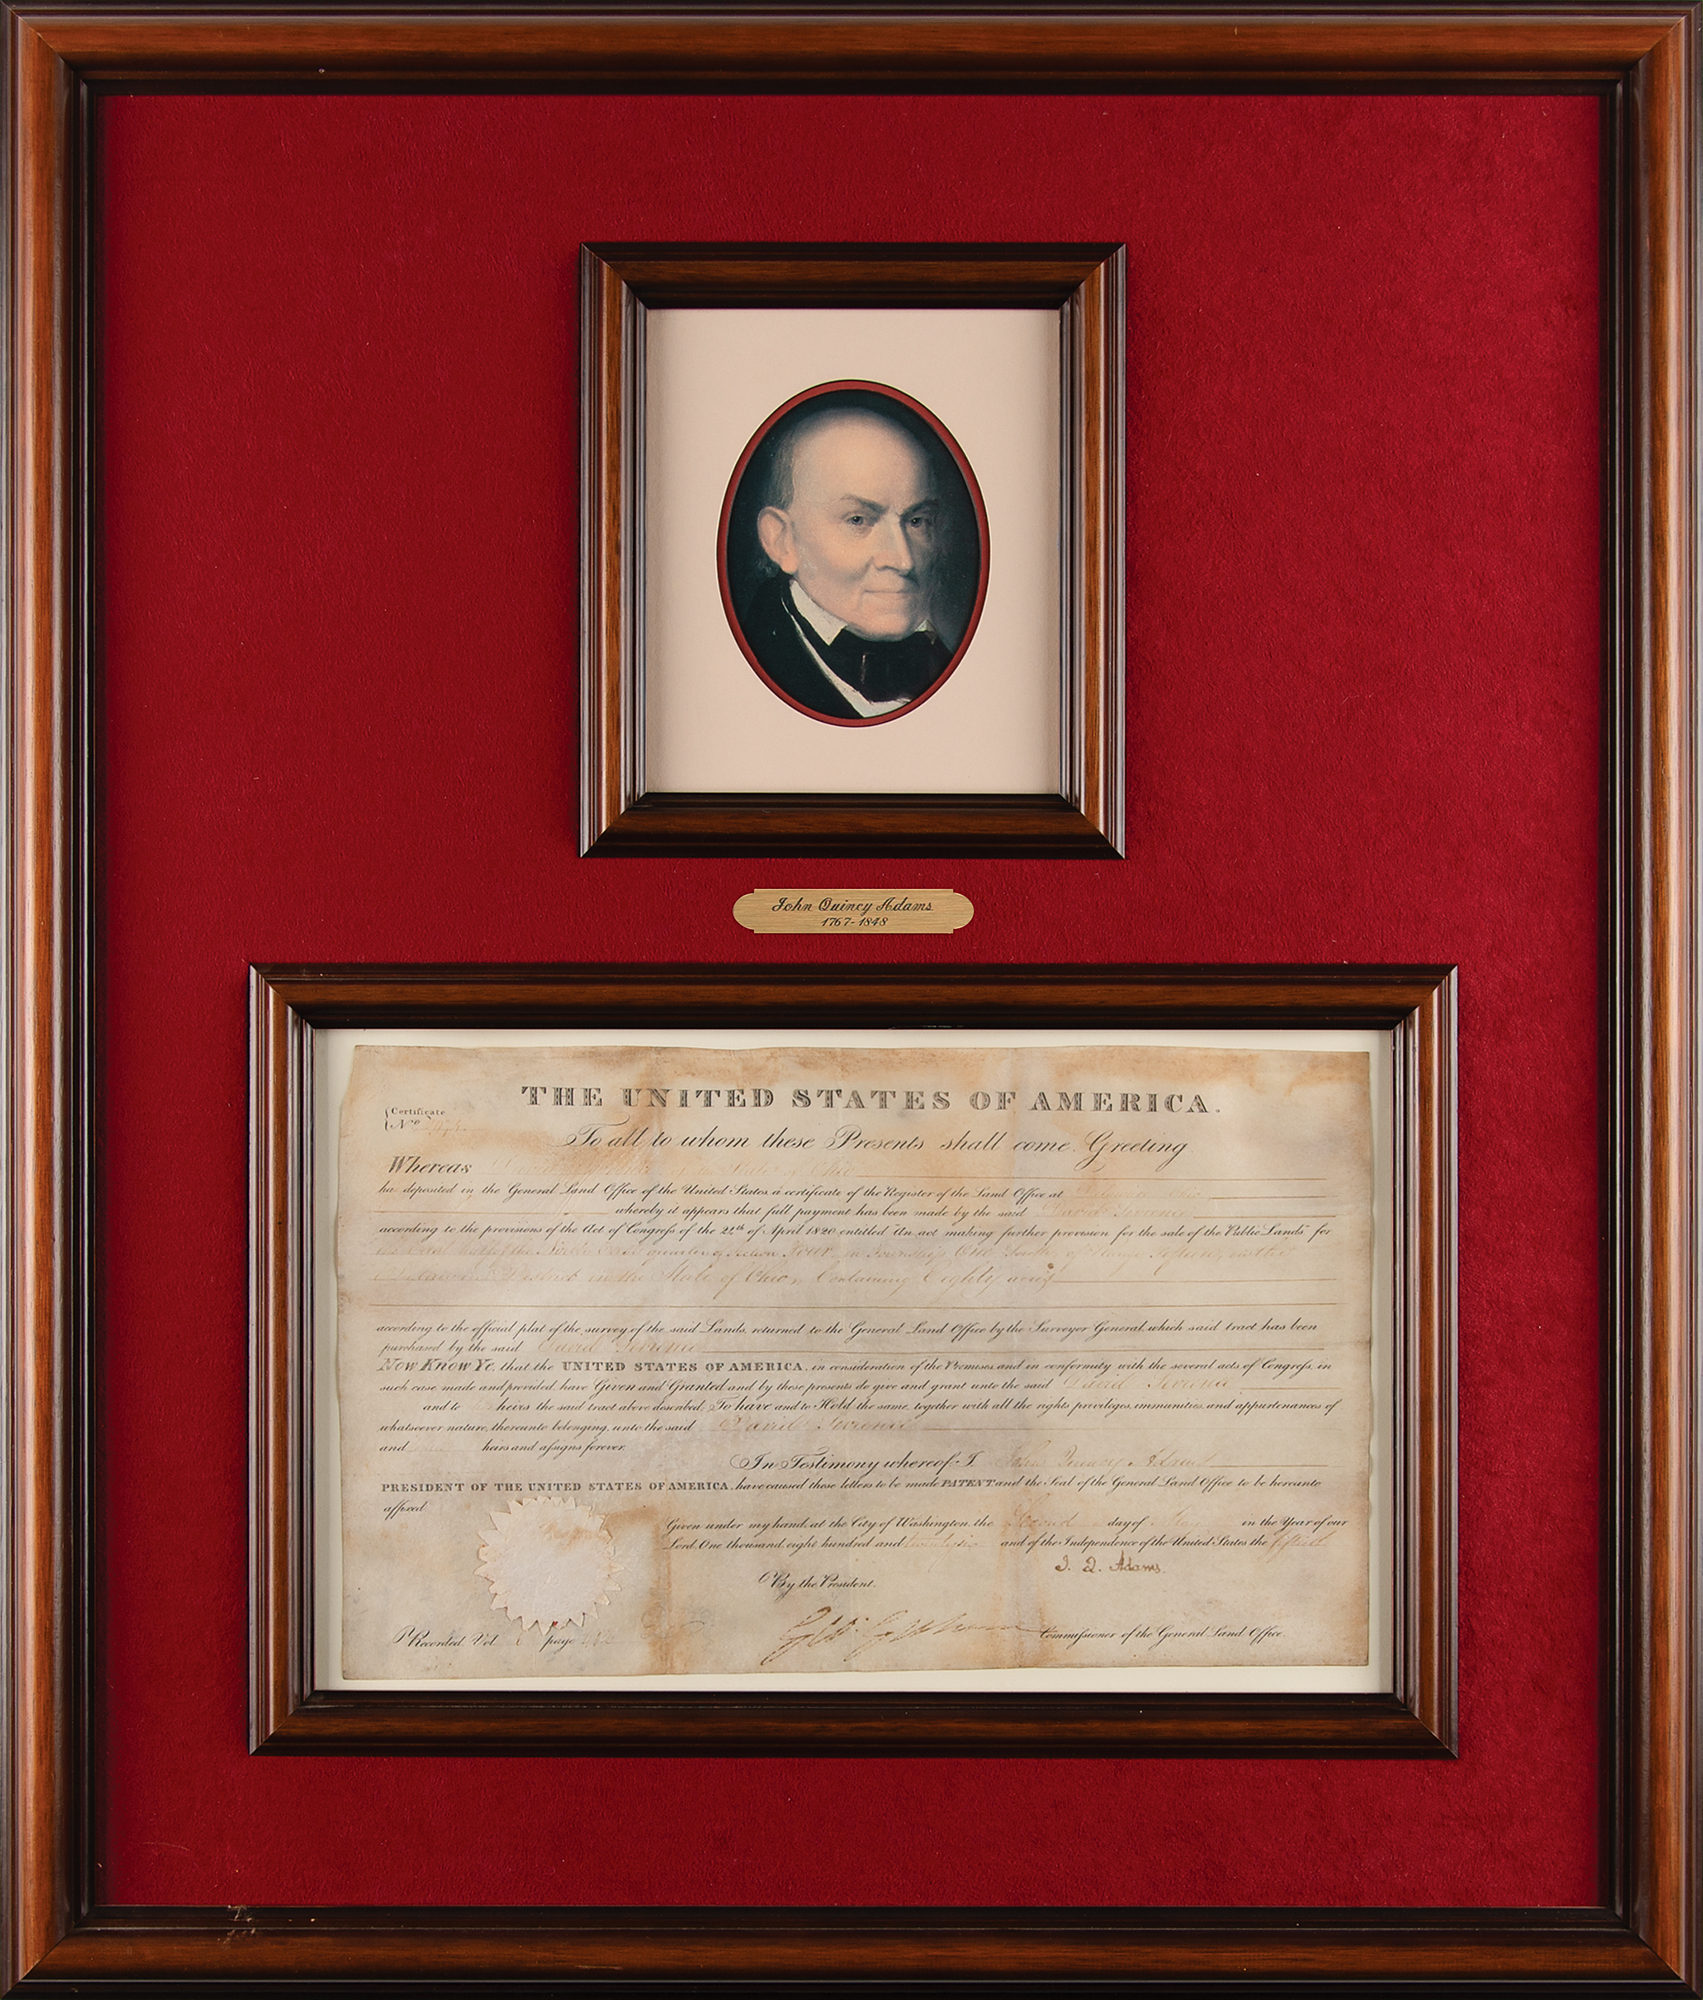 John Quincy Adams
1767-1848
THE UNITED STATES OF AMERICA.
Certificate
No.
To all to whom these Presents shall come, Greeting
Whereas David of the State of Ohio
ha deposited in the General Land Office of the United States, a certificate of the Register of the Land Office at
whereby it appears that full payment has been made by the said David
according to the provisions of the Act of Congress of the 24th of April 1820 entitled An act making further provision for the sale of the Public Lands for
half of the North East quarter of Section Four, in Township One of Range
District in the State of Ohio, Containing Eighty acres
according to the official plat of the survey of the said Lands, returned to the General Land Office by the Surveyor General, which said tract has been
purchased by the said David
Now Know Ye, that the UNITED STATES OF AMERICA, in consideration of the Premises, and in conformity with the several acts of Congress, in
such case made and provided, have Given and Granted and by these presents do give and grant unto the said David
and to heirs the said tract above described; To have and to Hold the same, together with all the rights, privileges, immunities, and appurtenances of
whatsoever nature, thereunto belonging, unto the said David
and heirs and assigns forever.
In Testimony whereof, I John Quincy Adams
PRESIDENT OF THE UNITED STATES OF AMERICA, have caused these letters to be made PATENT and the Seal of the General Land Office to be hereunto
affixed
Given under my hand, at the City of Washington, the Second day of in the Year of our
Lord, One thousand, eight hundred and and of the Independence of the United States the fiftieth
J. Q. Adams.
By the President.
Commissioner of the General Land Office.
Recorded, Vol page